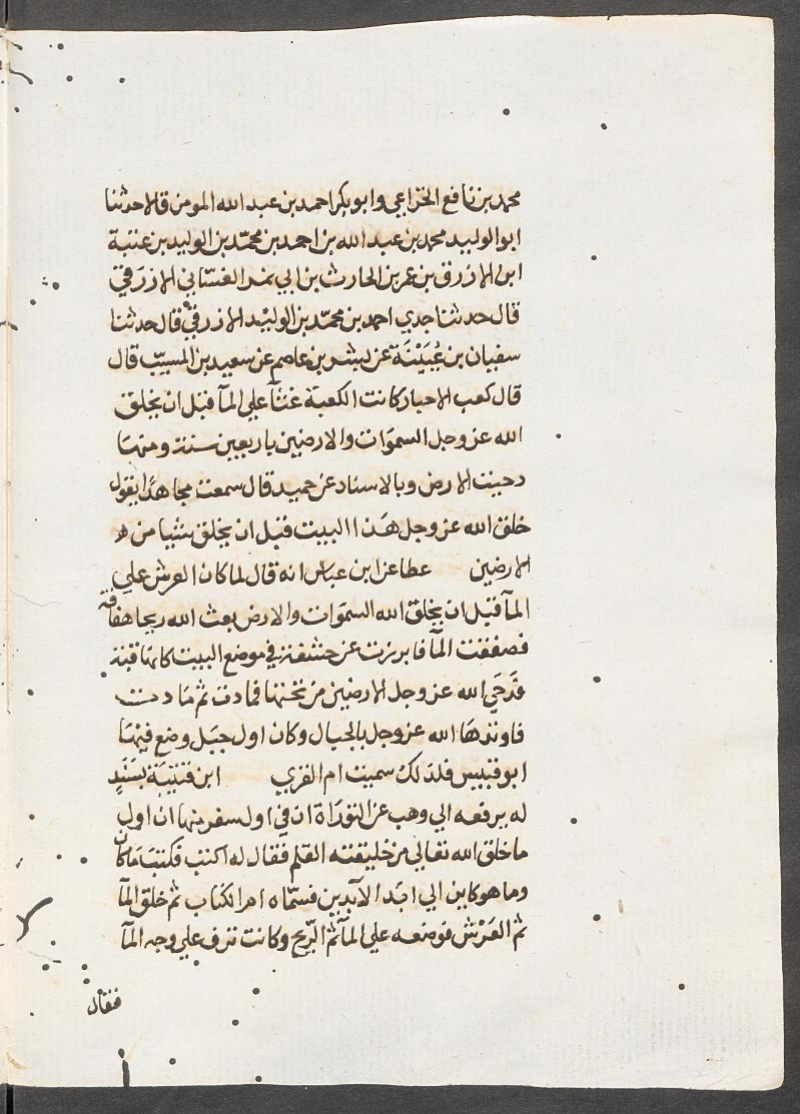 محمد بن نافع الخزاعي وابو بكر احمد بن عبد الله المومن قالا حدثنا
ابو الوليد محمد بن عبد الله بن احمد بن محمّد بن الوليد بن عتبة
ابن الازرق بن عمر بن الحارث بن ابي شمر الغستاني الازرقي
قال حدثنا جدي احمد بن محمّد بن الوليد الازرقي قال حدثنا
سفيان بن عُيَيْنَة عن بشر بن عاصم عن سعيد بن المسيّب قال
قال كعب الاحبار كانت الكعبَة غثآ علي المآ قبل ان يخلق
الله عز وجل السموَات والارضين باربعين سنة ومنهَا
دحيت الارض وبالاسناد عن حميد قال سمعت مجاهدا يقول
خلق الله عز وجل هَذا البيت قبل ان يخلق شيا من ه
الارضين عطا عن ابن عباس انه قال لما كان العرش علي
المآ قبل ان يخلق الله السموَات والارض بعث الله ريحا هفافة
فصفقت المآ فابرزت عن حشفة في موضع البيت كانهَا قبة
فدَحَي الله عز وجل الارضين من تحتها فمادت ثم مَادت
فاوتدهَا الله عز وجل بالجبال وكان اول جبَل وضع فيهَا
ابو قبيس فلذلك سميت ام القري ابن قتيبَة بسَنَدٍ
له يرفعه الي وهب عن التورَاة ان في اول سفر منها ان اول
ما خلق الله تعالي من خليقته القلم فقال له اكتب فكتبَ مَا كان
وما هو كاين الي ابَد الآبدين فسمّاه ام الكتاب ثم خلق المآ
ثم العَرْش فوضعه علي المآ ثم الرّيح وكانت تزف علي وجه المآ
فقال